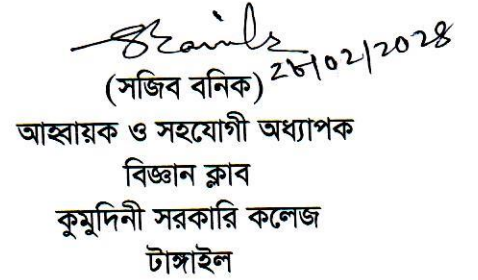 (সজিব বনিক)
আহ্বায়ক ও সহযোগী অধ্যাপক
বিজ্ঞান ক্লাব
কুমুদিনী সরকারি কলেজ
টাঙ্গাইল